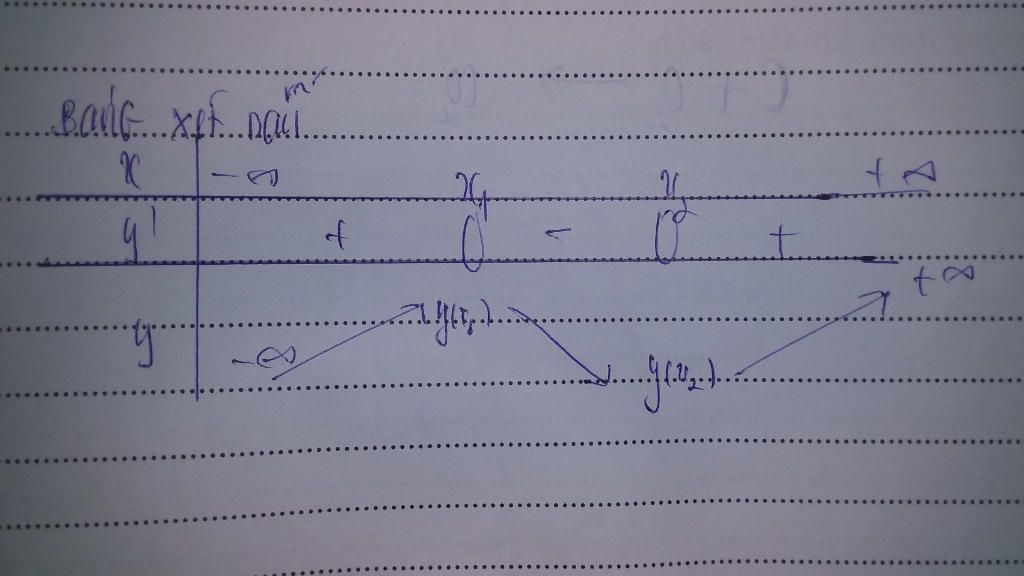 BẢNG XÉT DẤU
x -∞ x₁ x₂ +∞
y' + 0 - 0 +
y -∞ y(x₁) y(x₂) +∞